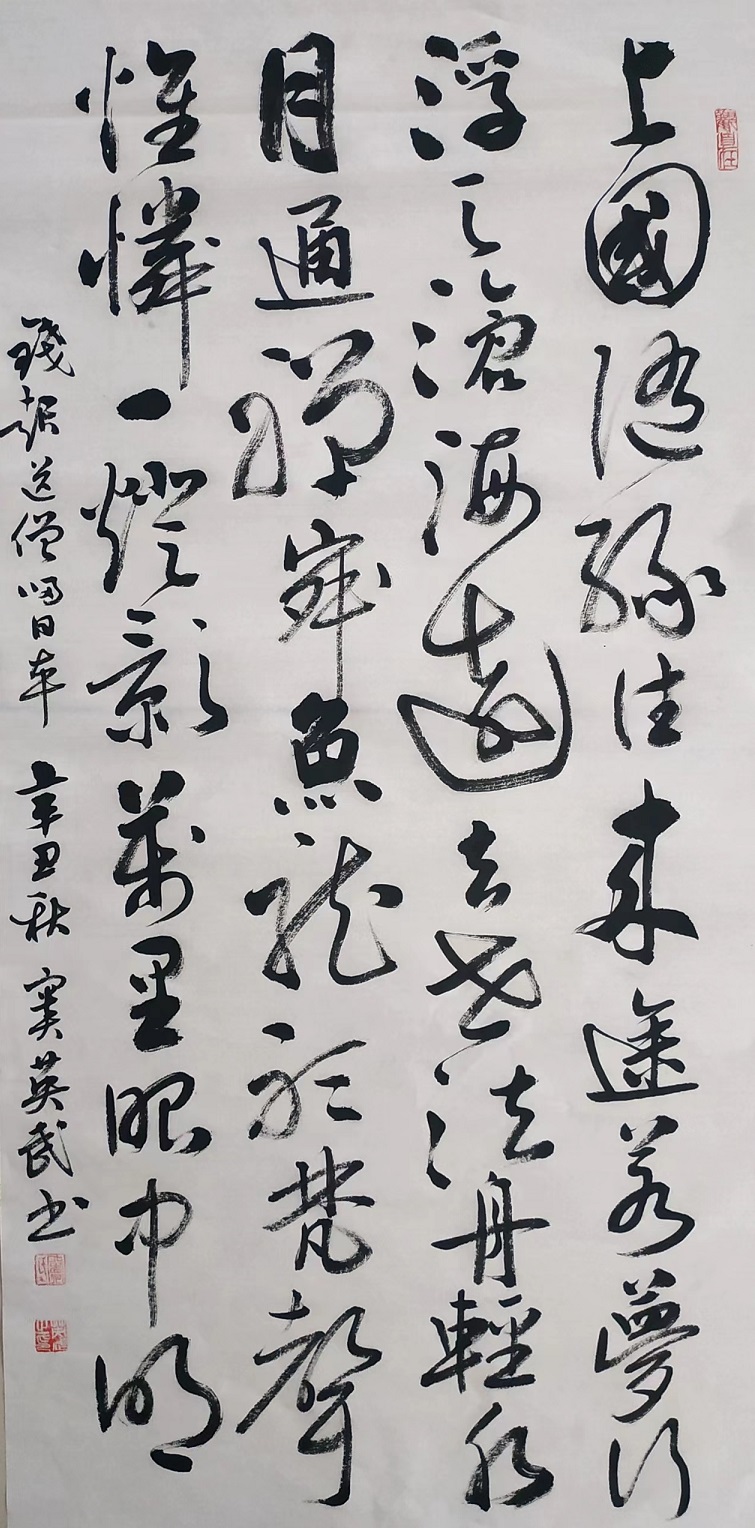 上國隨緣住來途若夢行
浮天滄海遠去世法舟輕水
月通禪寂魚龍聽梵聲
惟憐一燈影萬里眼中明
錢起送僧歸日本 辛丑秋 窦英武书